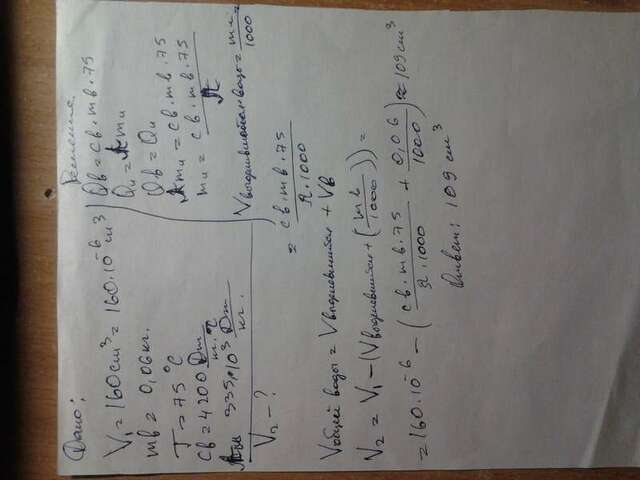 Дано:
V₁ = 160 см³ = 160·10⁻⁶ см 3
mв = 0,06 кг.
T = 75 °C
cв = 4200 Дж/кг·°C
335·10³ Дж/кг.
V₂ - ?
Решение
Qв = cв·mв·75
Qл = λmл
Qв = Qл
λmл = cв·mв·75
mл = cв·mв·75/λ
Vвыделившейся воды = mл/1000 =
= cв·mв·75/λ·1000
Vобщей воды = Vвыделившейся + Vв
V₂ = V₁ - (Vвыделившейся + (mв/1000))) =
= 160·10⁻⁶ - (cв·mв·75/λ·1000 + 0,06/1000) ≈ 109 см³
Ответ: 109 см³